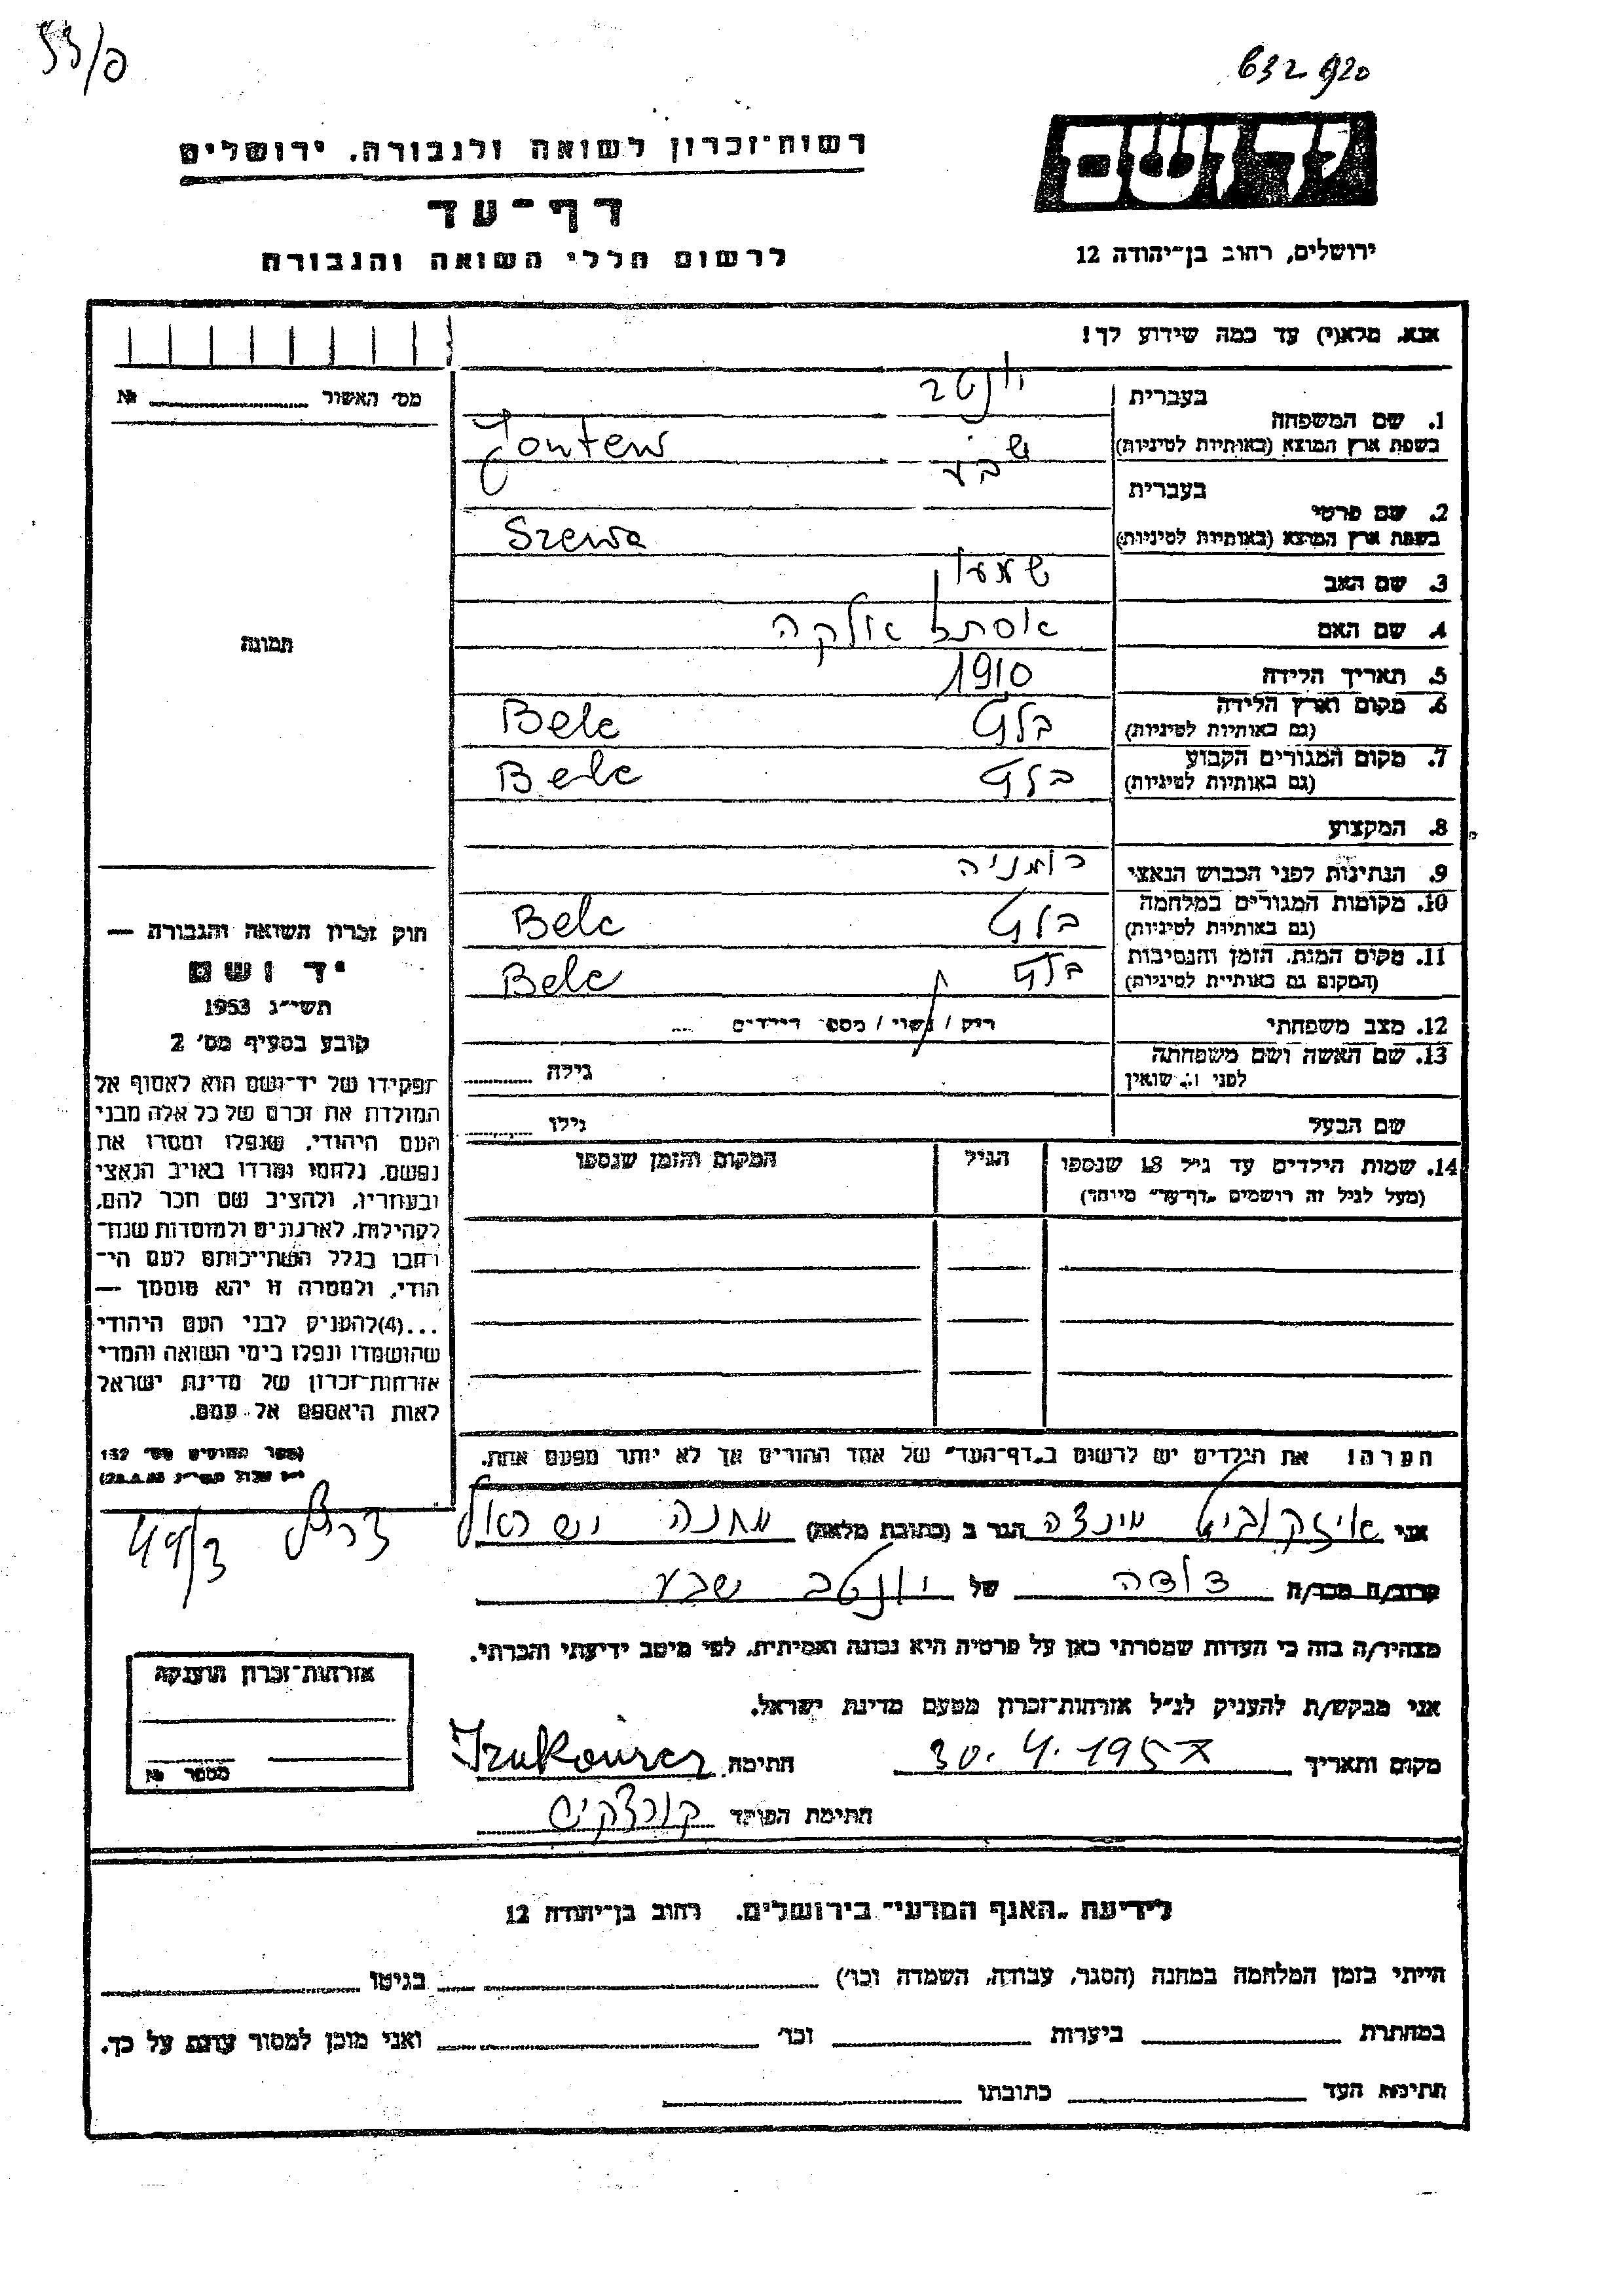 53/פ
632 920
יד ושם
רשות־זכרון לשואה ולגבורה. ירושלים
דף־עד
לרשום חללי השואה והגבורה
ירושלים, רחוב בן־יהודה 12
אנא, מלא(י) עד כמה שידוע לך!
מס׳ האשור № 
1. שם המשפחה
בעברית יונטב
בשפת ארץ המוצא (באותיות לטיניות) Jontew
שבע
2. שם פרטי
בעברית
בשפת ארץ המוצא (באותיות לטיניות) Szewa
3. שם האב שמעון
4. שם האם אסתר
5. תאריך הלידה 1910
6. מקום וארץ הלידה בלץ Belc
(גם באותיות לטיניות)
7. מקום המגורים הקבוע בלץ Belc
(גם באותיות לטיניות)
8. המקצוע
9. הנתינות לפני הכבוש הנאצי רומניה
10. מקומות המגורים במלחמה בלץ Belc
(גם באותיות לטיניות)
11. מקום המות, הזמן והנסיבות בלץ Belc
(המקום גם באותיות לטיניות)
12. מצב משפחתי רוק / נשוי / מספר הילדים
13. שם האשה ושם משפחתה
לפני הנשואין גילה
שם הבעל גילו
14. שמות הילדים עד גיל 18 שנספו הגיל המקום והזמן שנספו
(מעל לגיל זה רושמים „דף־עד״ מיוחד)
הערה! את הילדים יש לרשום ב„דף־העד״ של אחד ההורים אך לא יותר מפעם אחת.
תמונה
חוק זכרון השואה והגבורה —
יד ושם
תשי״ג 1953
קובע בסעיף מס׳ 2
תפקידו של יד־ושם הוא לאסוף אל
המולדת את זכרם של כל אלה מבני
העם היהודי, שנפלו ומסרו את
נפשם, נלחמו ומרדו באויב הנאצי
ובעוזריו, ולהציב שם וזכר להם,
לקהילות, לארגונים ולמוסדות שנח־
רבו בגלל השתייכותם לעם הי־
הודי, ולמטרה זו יהא מוסמך —
...(4)להעניק לבני העם היהודי
שהושמדו ונפלו בימי השואה והמרי
אזרחות־זכרון של מדינת ישראל
לאות היאספם אל עמם.
(ספר החוקים מס׳ 132
49/3
אני איזקוביץ מינצה הגר ב (כתובת מלאה) מחנה ישראל
קרוב/ה מכר/ה דודה של יונטב שבע
מצהיר/ה בזה כי העדות שמסרתי כאן על פרטיה היא נכונה ואמיתית, לפי מיטב ידיעתי והכרתי.
אני מבקש/ת להעניק לנ״ל אזרחות־זכרון מטעם מדינת ישראל.
מקום ותאריך 30.4.1957 חתימה
חתימת הפוקד
אזרחות־זכרון הוענקה
מספר №
לידיעת „האגף המדעי״ בירושלים. רחוב בן־יהודה 12
הייתי בזמן המלחמה במחנה (הסגר, עבודה, השמדה וכו׳) בגיטו
במחתרת ביערות וכו׳ ואני מוכן למסור עדות על כך.
חתימת העד כתובתו